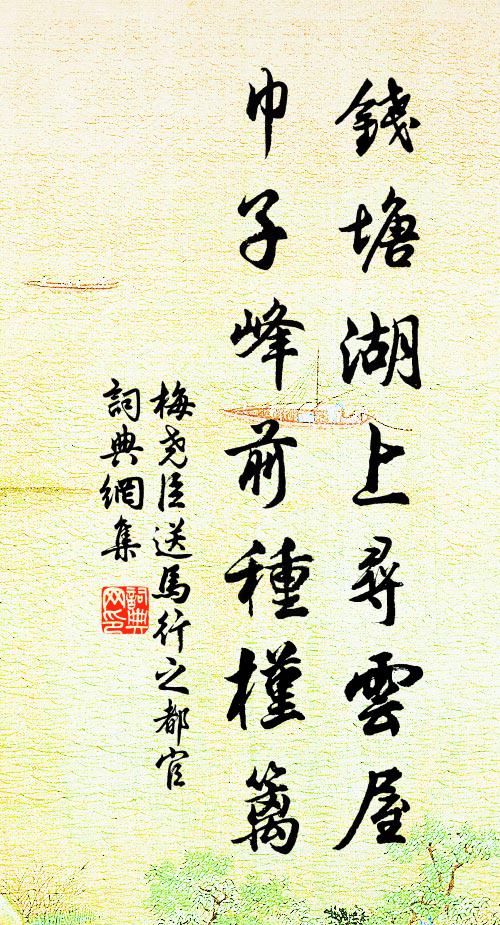 錢塘湖上尋雲屋
巾子峰前種槿籬
梅堯臣送馬行之都官
詞典網集
詞典网印